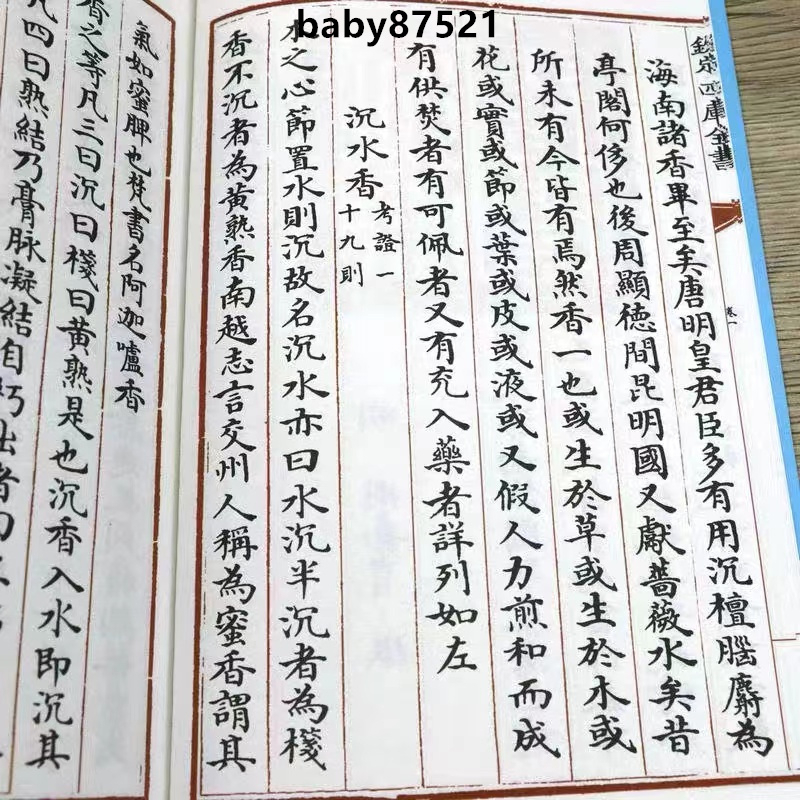 baby87521
欽定四庫全書
卷一
海南諸香畢至矣唐明皇君臣多有用沉檀腦麝為
亭閣何侈也後周顯徳間昆明國又獻薔薇水矣昔
所未有今皆有焉然香一也或生於草或生於木或
花或實或節或葉或皮或液或又假人力煎和而成
有供焚者有可佩者又有充入藥者詳列如左
沉水香考證一十九則
木之心節置水則沉故名沉水亦曰水沉半沉者為棧
香不沉者為黃熟香南越志言交州人稱為蜜香謂其
氣如蜜脾也梵書名阿迦嚧香
香之等凡三曰沉曰棧曰黃熟是也沉香入水即沉其
凡四曰熟結乃膏脉凝結自朽出者曰